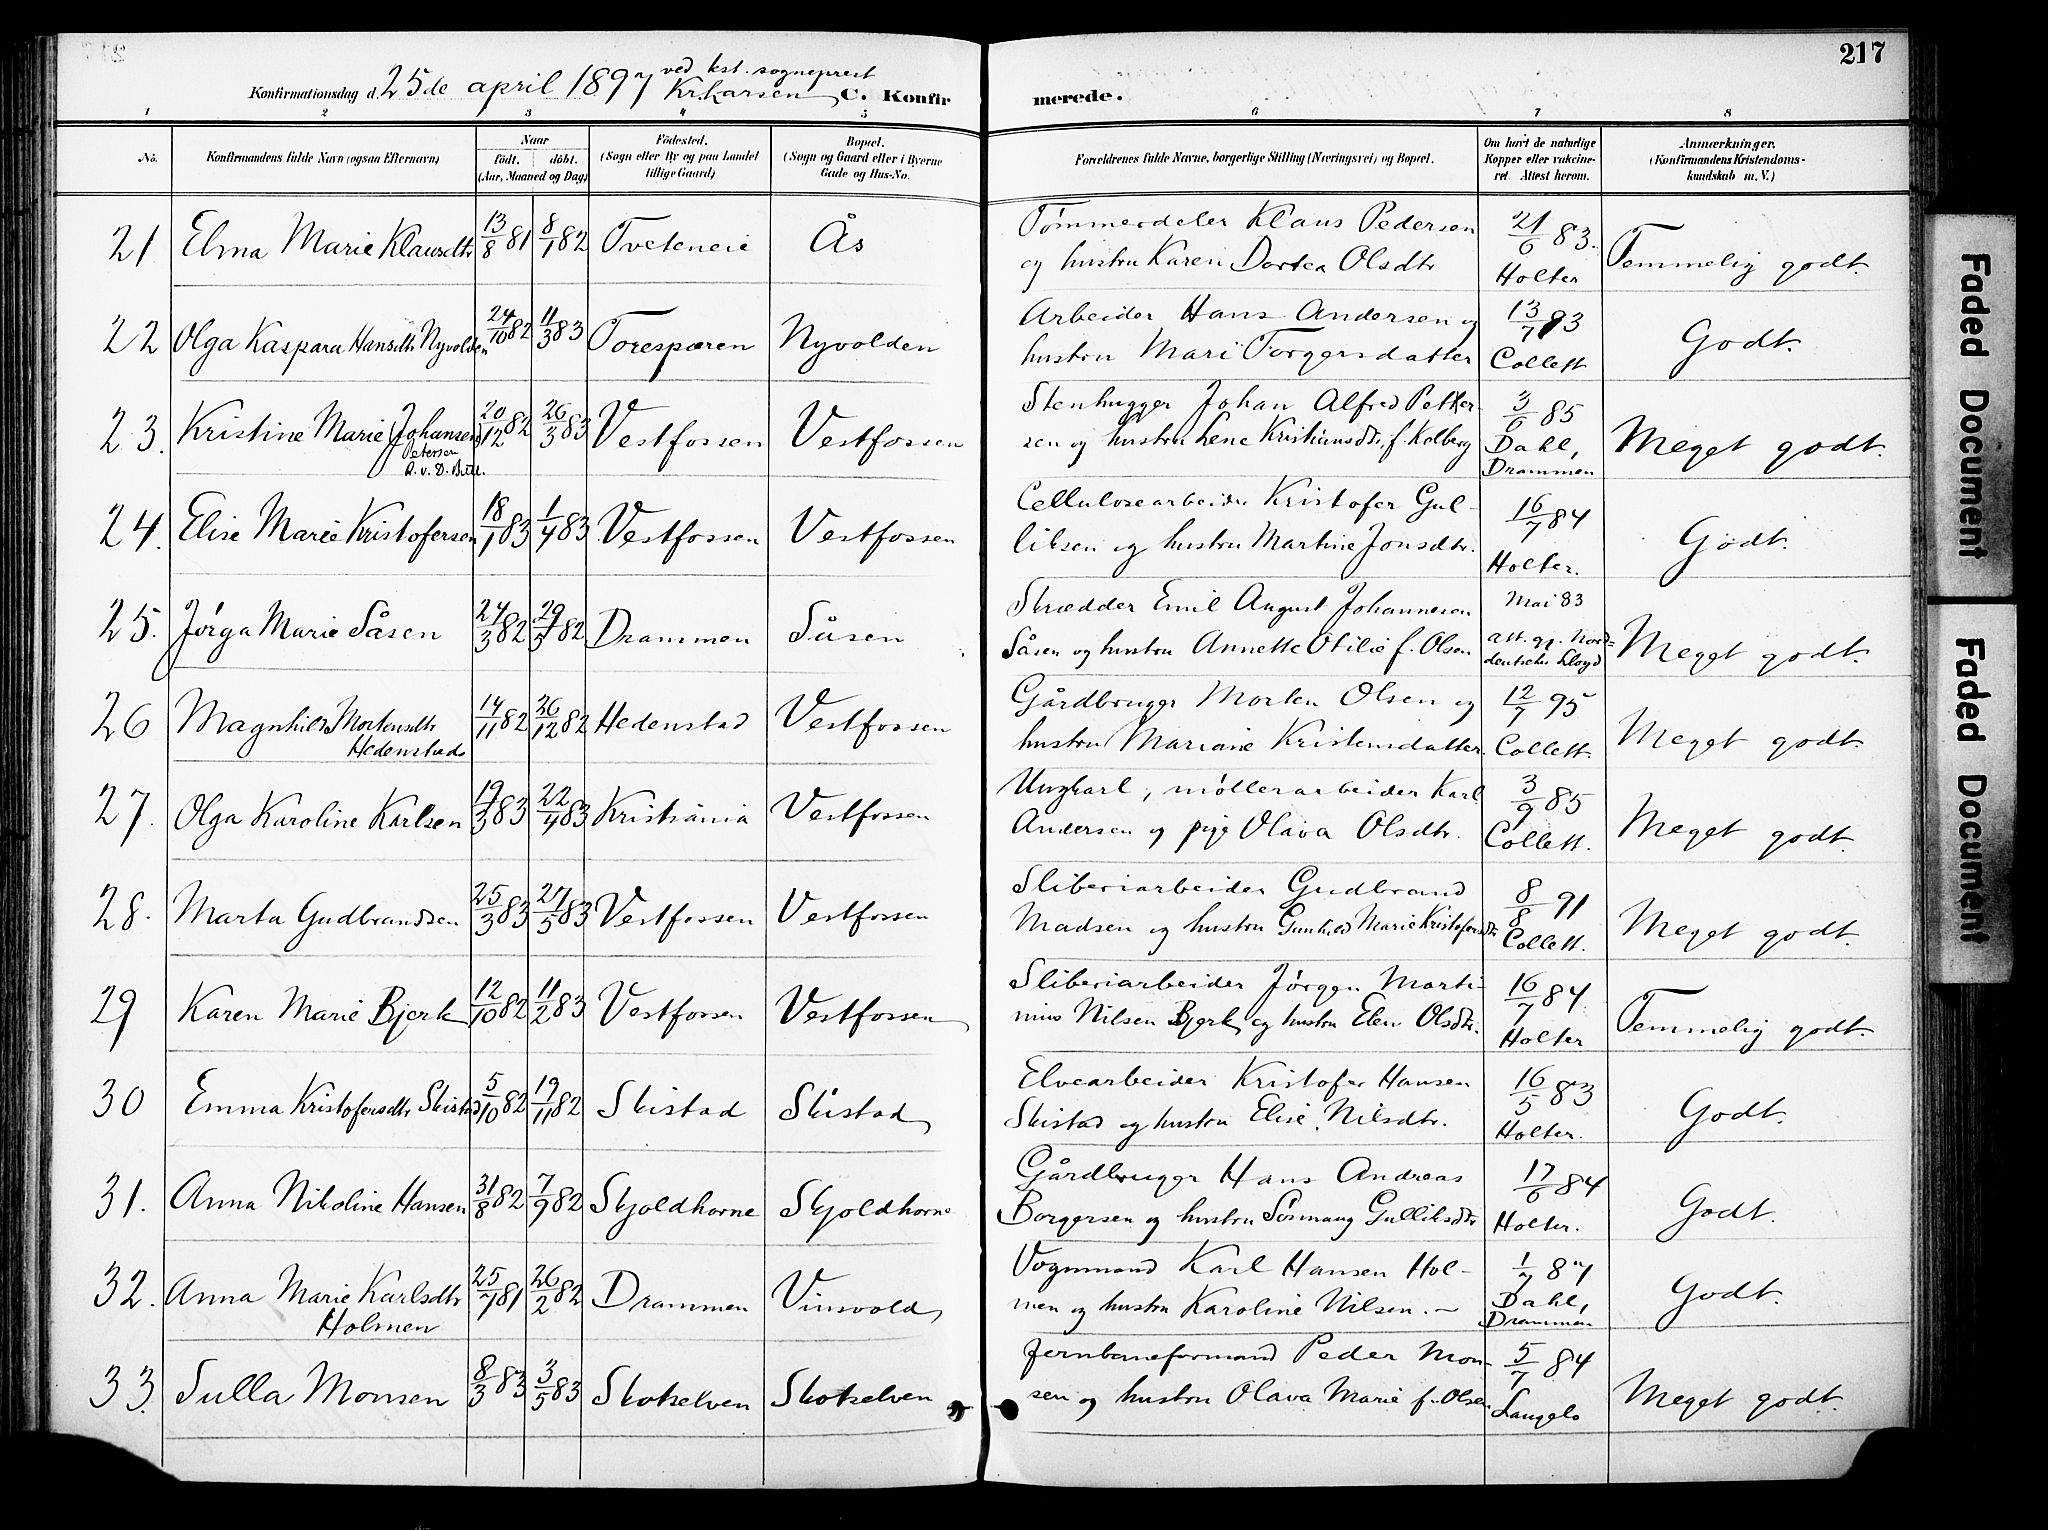 217
Konfirmationsdag d. 25de april 1897 ved kst. sogneprest Kr. Larsen C. Konfirmerede.
1 2 3 4 5 6 7 8
No. Konfirmandens fulde Navn (ogsaa Efternavn) Naar født. døbt. (Aar, Maaned og Dag) Fødested. (Sogn eller By og paa Landet tillige Gaard) Bopæl. (Sogn og Gaard eller i Byerne Gade og Hus-No. Forældrenes fulde Navne, borgerlige Stilling (Næringsvei) og Bopæl. Om havt de naturlige Kopper eller vakcineret. Attest herom. Anmærkninger. (Konfirmandens Kristendomskundskab m. V.)
21 Elma Marie Klausdtr 13/8 81 8/1 82 Tveteneie Ås Tømmerdeler Klaus Pedersen og hustru Karen Dortea Olsdtr 21/6 83. Holter Temmelig godt.
22 Olga Kaspara Hansdtr Nyvolden 24/10 82 11/3 83 Toresparen Nyvolden Arbeider Hans Andersen og hustru Mari Torgersdatter 13/7 93 Collett Godt.
23. Kristine Marie Johansen Petersen R. v. D. Bull. 20/12 82 26/3 83 Vestfossen Vestfossen Stenhugger Johan Alfred Pettersen og hustru Lene Kristiansdtr, f. Kolberg 3/6 85 Dahl, Drammen Meget godt.
24. Elise Marie Kristofersen 18/1 83 1/4 83 Vestfossen Vestfossen Cellulosearbeider Kristofer Gulliksen og hustru Martine Jonsdtr. 16/7 84 Holter. Godt.
25. Jørga Marie Såsen 24/3 82 29/5 82 Drammen Såsen Skrædder Emil August Johannesen Såsen og hustru Annette Otilie f. Olsen Mai 83 att. gg. Norddeutscher Lloyd Meget godt.
26 Magnhild Mortensdtr Hedenstad 14/11 82 26/12 82 Hedenstad Vestfossen Gårdbruger Morten Olsen og hustru Mariane Kristensdatter 12/7 95 Collett. Meget godt.
27. Olga Karoline Karlsen 19/3 83 22/4 83 Kristiania Vestfossen Ungkarl, møllerarbeider Karl Andersen og pige Olava Olsdtr. 3/9 85 Collett. Meget godt.
28. Marta Gudbrandsen 25/3 83 27/5 83 Vestfossen Vestfossen Sliberiarbeider Gudbrand Madsen og hustru Gunhild Marie Kristofersdtr 8/8 91 Collett. Meget godt.
29 Karen Marie Bjerk 12/10 82 11/2 83 Vestfossen Vestfossen Sliberiarbeider Jørgen Martinius Nilsen Bjerk og hustru Elen Olsdtr. 16/7 84 Holter Temmelig godt.
30 Emma Kristofersdtr Skistad 5/10 82 19/11 82 Skistad Skistad Elvearbeider Kristofer Hansen Skistad og hustru Elise Nilsdtr. 16/5 83 Holter. Godt.
31. Anna Nikoline Hansen 31/8 82 7/9 82 Skjoldhorne Skjoldhorne Gårdbruger Hans Andreas Borgersen og hustru Sørmang Gulliksdtr 17/6 84 Holter. Godt.
32. Anna Marie Karlsdtr Holmen 25/7 81 26/2 82 Drammen Vinsvold Vognmand Karl Hansen Holmen og hustru Karoline Nilsen. 1/7 87 Dahl, Drammen Godt.
33. Sulla Monsen 8/3 83 3/5 83 Skotselven Skotselven Jernbaneformand Peder Monsen og hustru Olava Marie f. Olsen 5/7 84 Langelo Meget godt.
Faded Document
Faded Document